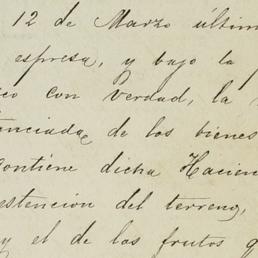 12 de Marzo últim
espresa, y bajo la
co con verdad, la
enciada de los bienes
contiene dicha Hacien
estencion del terreno,
y el de los frutos q